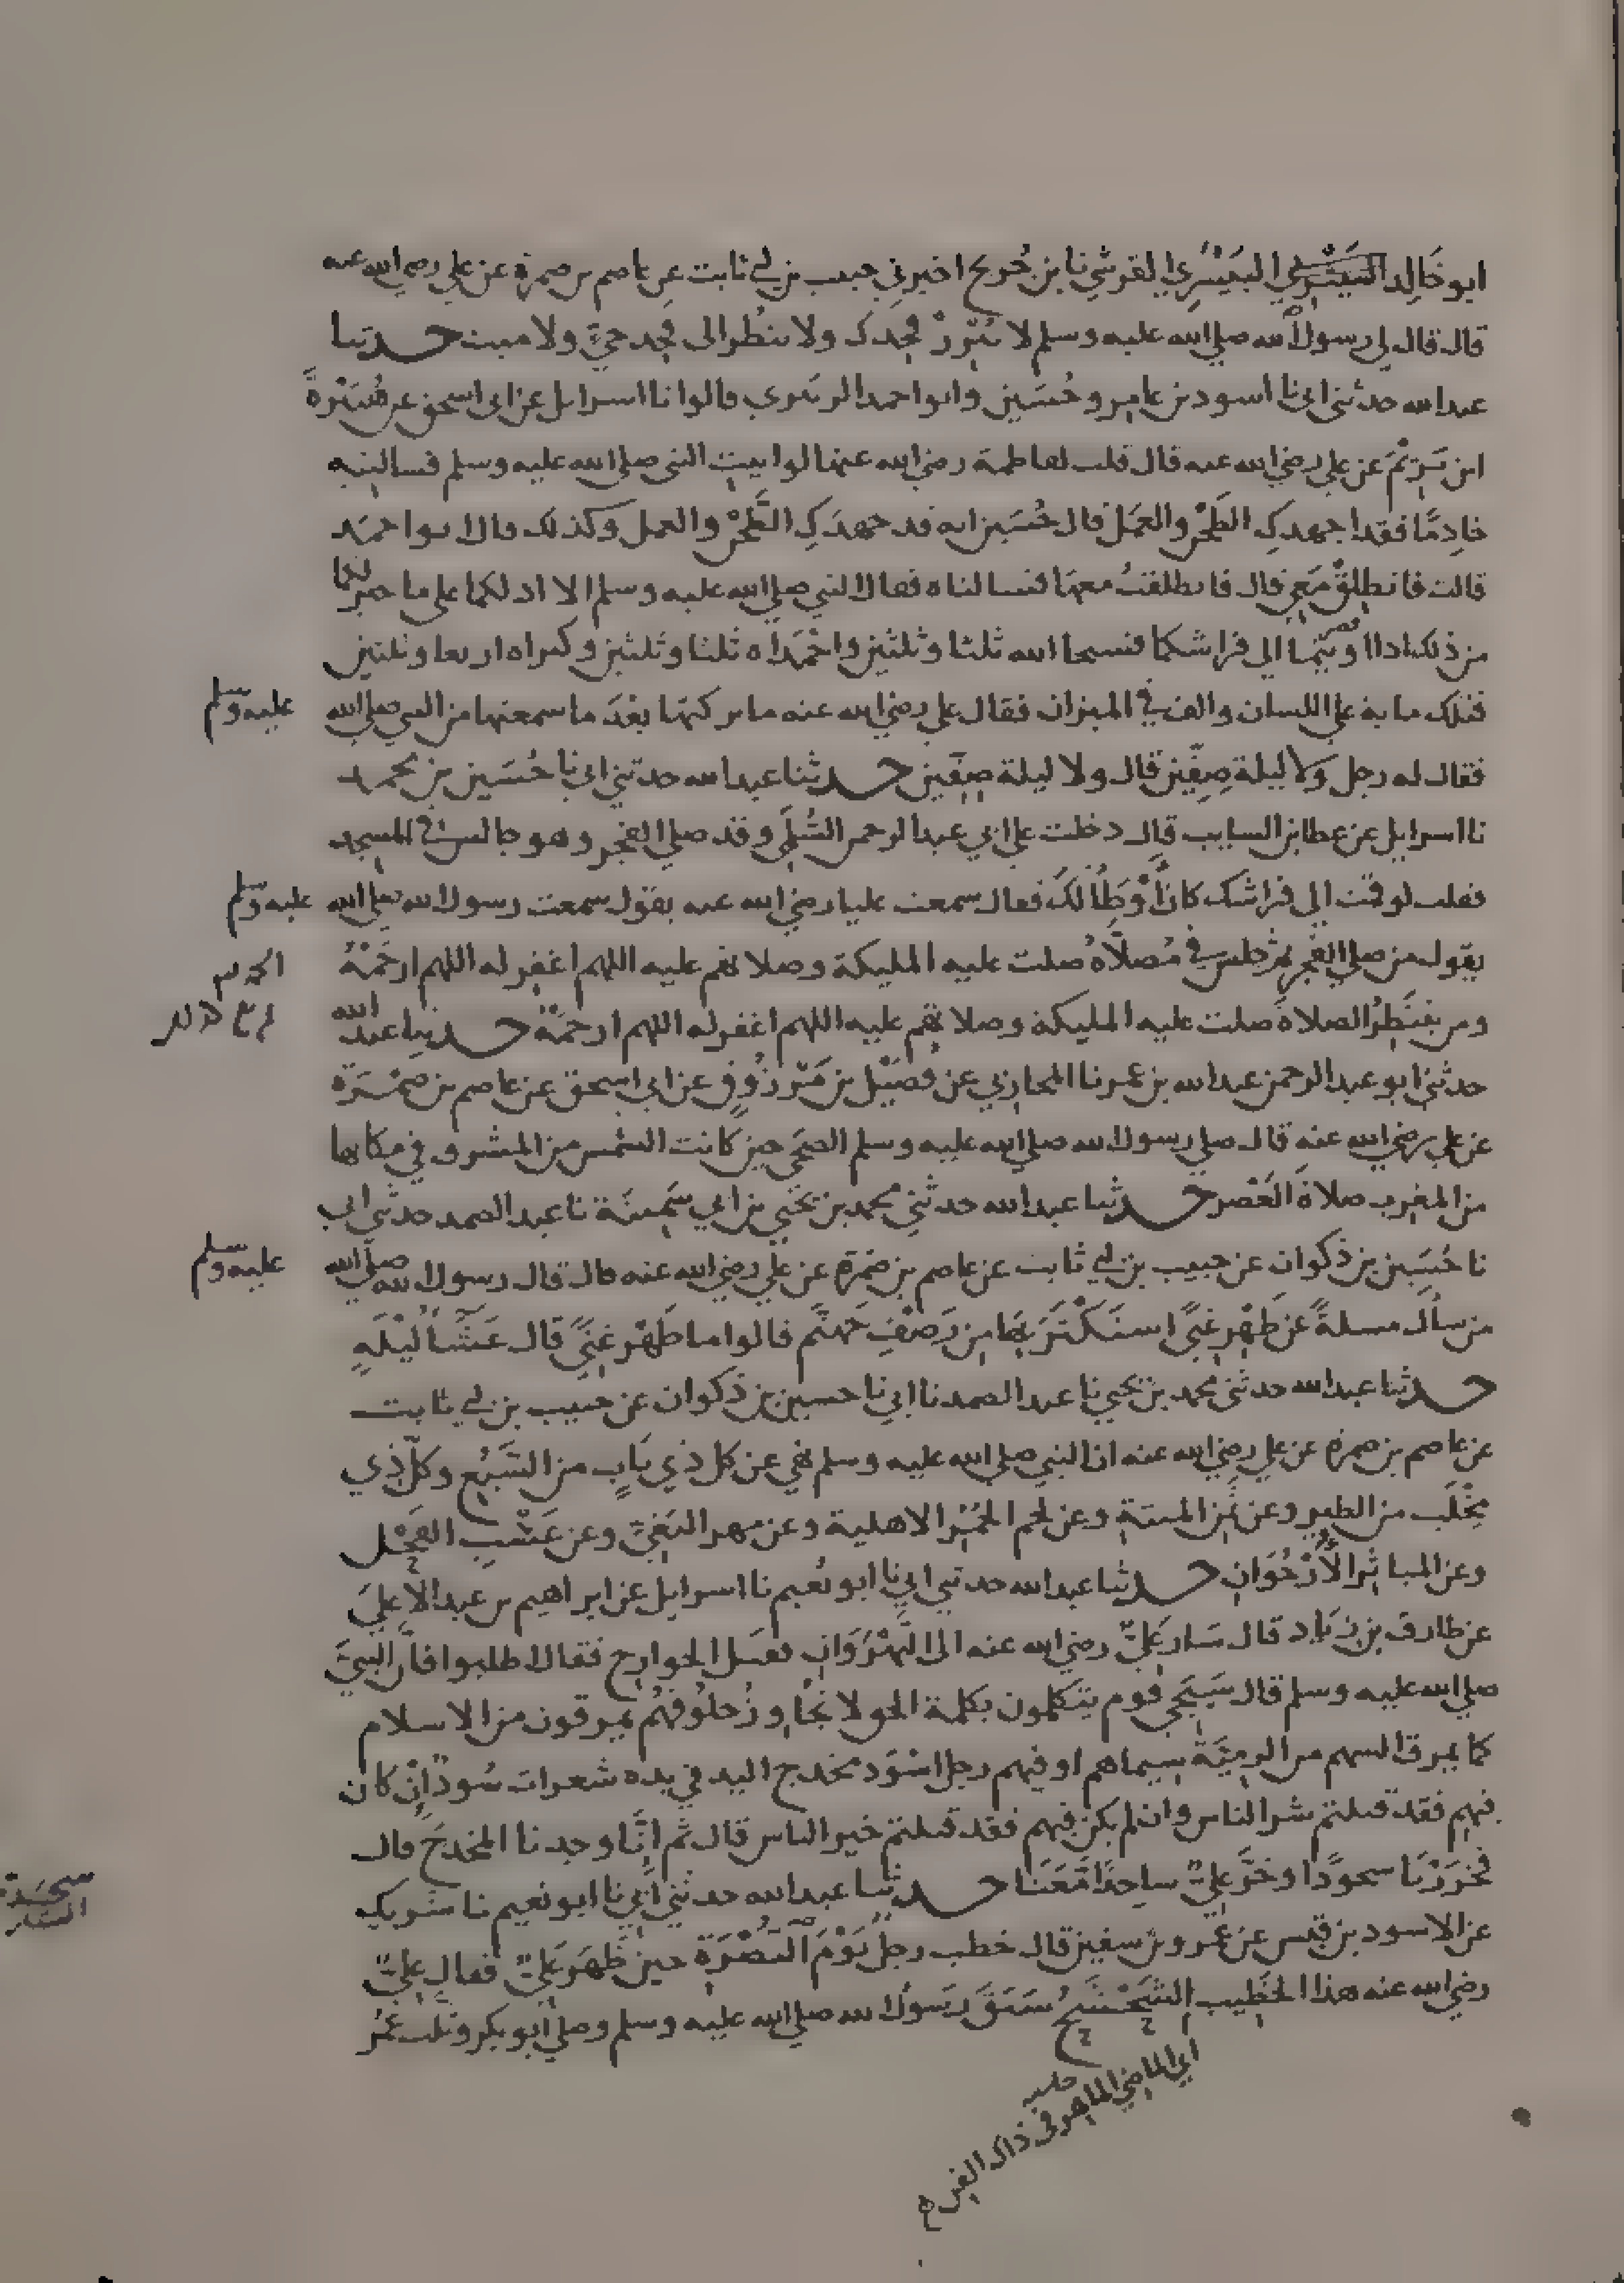 ابو خالد البَيْسَري القرشي نا بن جُريج اخبرني حبيب بن ابي ثابت عن عاصم بن ضمرة عن علي رضي الله عنه
قال قال لي رسول الله صلى الله عليه وسلم لا تُبْرِزْ فخِذك ولا تنظُر الى فخِذ حيٍّ ولا ميت حدثنا
عبد الله حدثني ابي نا اسود بن عامر وحُسَين وابو احمد الزبيري قالوا نا اسرايل عن ابي اسحق عن هُبَيْرَةَ
ابن يَرِيْمَ عن علي رضي الله عنه قال قلت لفاطمة رضي الله عنها لو اتيتِ النبي صلى الله عليه وسلم فسالتيه
خادِمًا فقد اجهدكِ الطَحْنُ والعَمَل قال حُسَين انه قد جهدَكِ الطَّحْنُ والعمل وكذلك قال ابو احمَد
قالت فانطلِقْ مَعِي قال فانطلقتُ معهَا فسالناه فقال النبي صلى الله عليه وسلم الا ادلكما على ما خير لكما
من ذلك اذا اويتما الى فراشكما فسبحا الله ثلثا وثلثين واحْمَداه ثلثا وثلثين وكبراه اربعا وثلثين
فتلك ماية على اللسان والف في الميزان فقال علي رضي الله عنه ما تركتها بعْدَ ما سمعتها من النبي صلى الله عليه وسلم
فقال له رجل ولا ليلة صِفِّين قال ولا ليلة صِفِّين حدثنا عبد الله حدثني ابي نا حُسَين بن محمد
نا اسرايل عن عطا بن السايب قال دخلت على ابي عبد الرحمن السُّلَمي وقد صلى الفجر وهو جالس في المسجد
فقلت لو قمت الى فراشك كان أَوْطَأُ لكَ فقال سمعت عليا رضي الله عنه يقول سمعت رسول الله صلى الله عليه وسلم
يقول من صلى الفجر ثم جلس في مُصلَّاهُ صلت عليه المليكة وصلاتهم عليه اللهم اغفر له اللهم ارحَمْهُ
ومن ينتَظِرُ الصلاةَ صلت عليه المليكة وصلاتهم عليه اللهم اغفر له اللهم ارحمْهُ حدثنا عبد الله
حدثني ابو عبد الرحمن عبد الله بن عمر نا المحاربي عن فُضَيْل بن مَرْزُوقٍ عن ابي اسحق عن عاصم بن ضمْرَة
عن علي رضي الله عنه قال صلى رسول الله صلى الله عليه وسلم الضحَى حين كانت الشمس من المشرق في مكانها
من المغرب صلاةَ العَصْر حدثنا عبد الله حدثني محمد بن يَحْيَى بن ابي سَمِينَة نا عبد الصمد حدثني ابي
نا حُسَين بن ذكوان عن حبيب بن ابي ثابت عن عاصم بن ضمْرة عن علي رضي الله عنه قال قال رسول الله صلى الله عليه وسلم
من سأل مسلةً عن ظَهْرِ غِنًى استَكْثَرَ بِهَا مِن رَضْفِ جَهنَّم قالوا ما ظَهْر غِنًى قال عَشَآ لَيْلَةٍ
حدثنا عبد الله حدثني محمد بن يحيى نا عبد الصمد نا ابي نا حسين بن ذكوان عن حبيب بن ابي ثابت
عن عاصم بن ضمرة عن علي رضي الله عنه ان النبي صلى الله عليه وسلم نهي عن كل ذي نَابٍ من السَّبُعِ وكلِّ ذِي
مِخْلَب من الطيرِ وعن ثمَنِ الميتة وعن لحم الحُمُرِ الاهلية وعن مهر البَغِيِّ وعن عَسْبِ الفَحْل
وعن المياثِر الأُرْجُوَان حدثنا عبد الله حدثني ابي نا ابو نُعَيم نا اسرايل عن ابراهيم بن عبد الاعلى
عن طارق بن زيَاد قال سَار عَلِيٌّ رضي الله عنه الى النَّهْرَوَانِ فقتل الخوارج فقال اطلبوا فانَّ النبيَّ
صلى الله عليه وسلم قال سَيَجي قوم يتكلمون بكلمة الحق لا تجاوز حُلُوقهُم يمرقون من الاسلام
كما يمرق السهم من الرمِيَّةِ سيماهم او فيهم رجل اسْوَد مخدج اليد في يده شعرات سُودٌ اِنْ كان
فيهم فقد قتلتم شر الناس وان لم يكن فيهم فقد قتلتم خير الناس قال ثم انَّا وجدنا المخدجَ قال
فخَرَرْنَا سجودًا وخَرَّ عَلِيٌّ ساجدًا مَّعَنَا حدثنا عبد الله حدثني ابي نا ابو نعيم نا شريك
عن الاسود بن قيس عن عَمرو بن سفين قال خطب رجلٌ يَوْمَ البَصْرَةِ حين ظَهَر عَلِيٌّ فقال عليٌّ
رضي الله عنه هذا الخَطِيب الشَّحْشَحُ سَبَقَ رَسولُ الله صلى الله عليه وسلم وصلى أبو بكر وثلث عُمر
اي الماضي الماهر في ذاك الفن